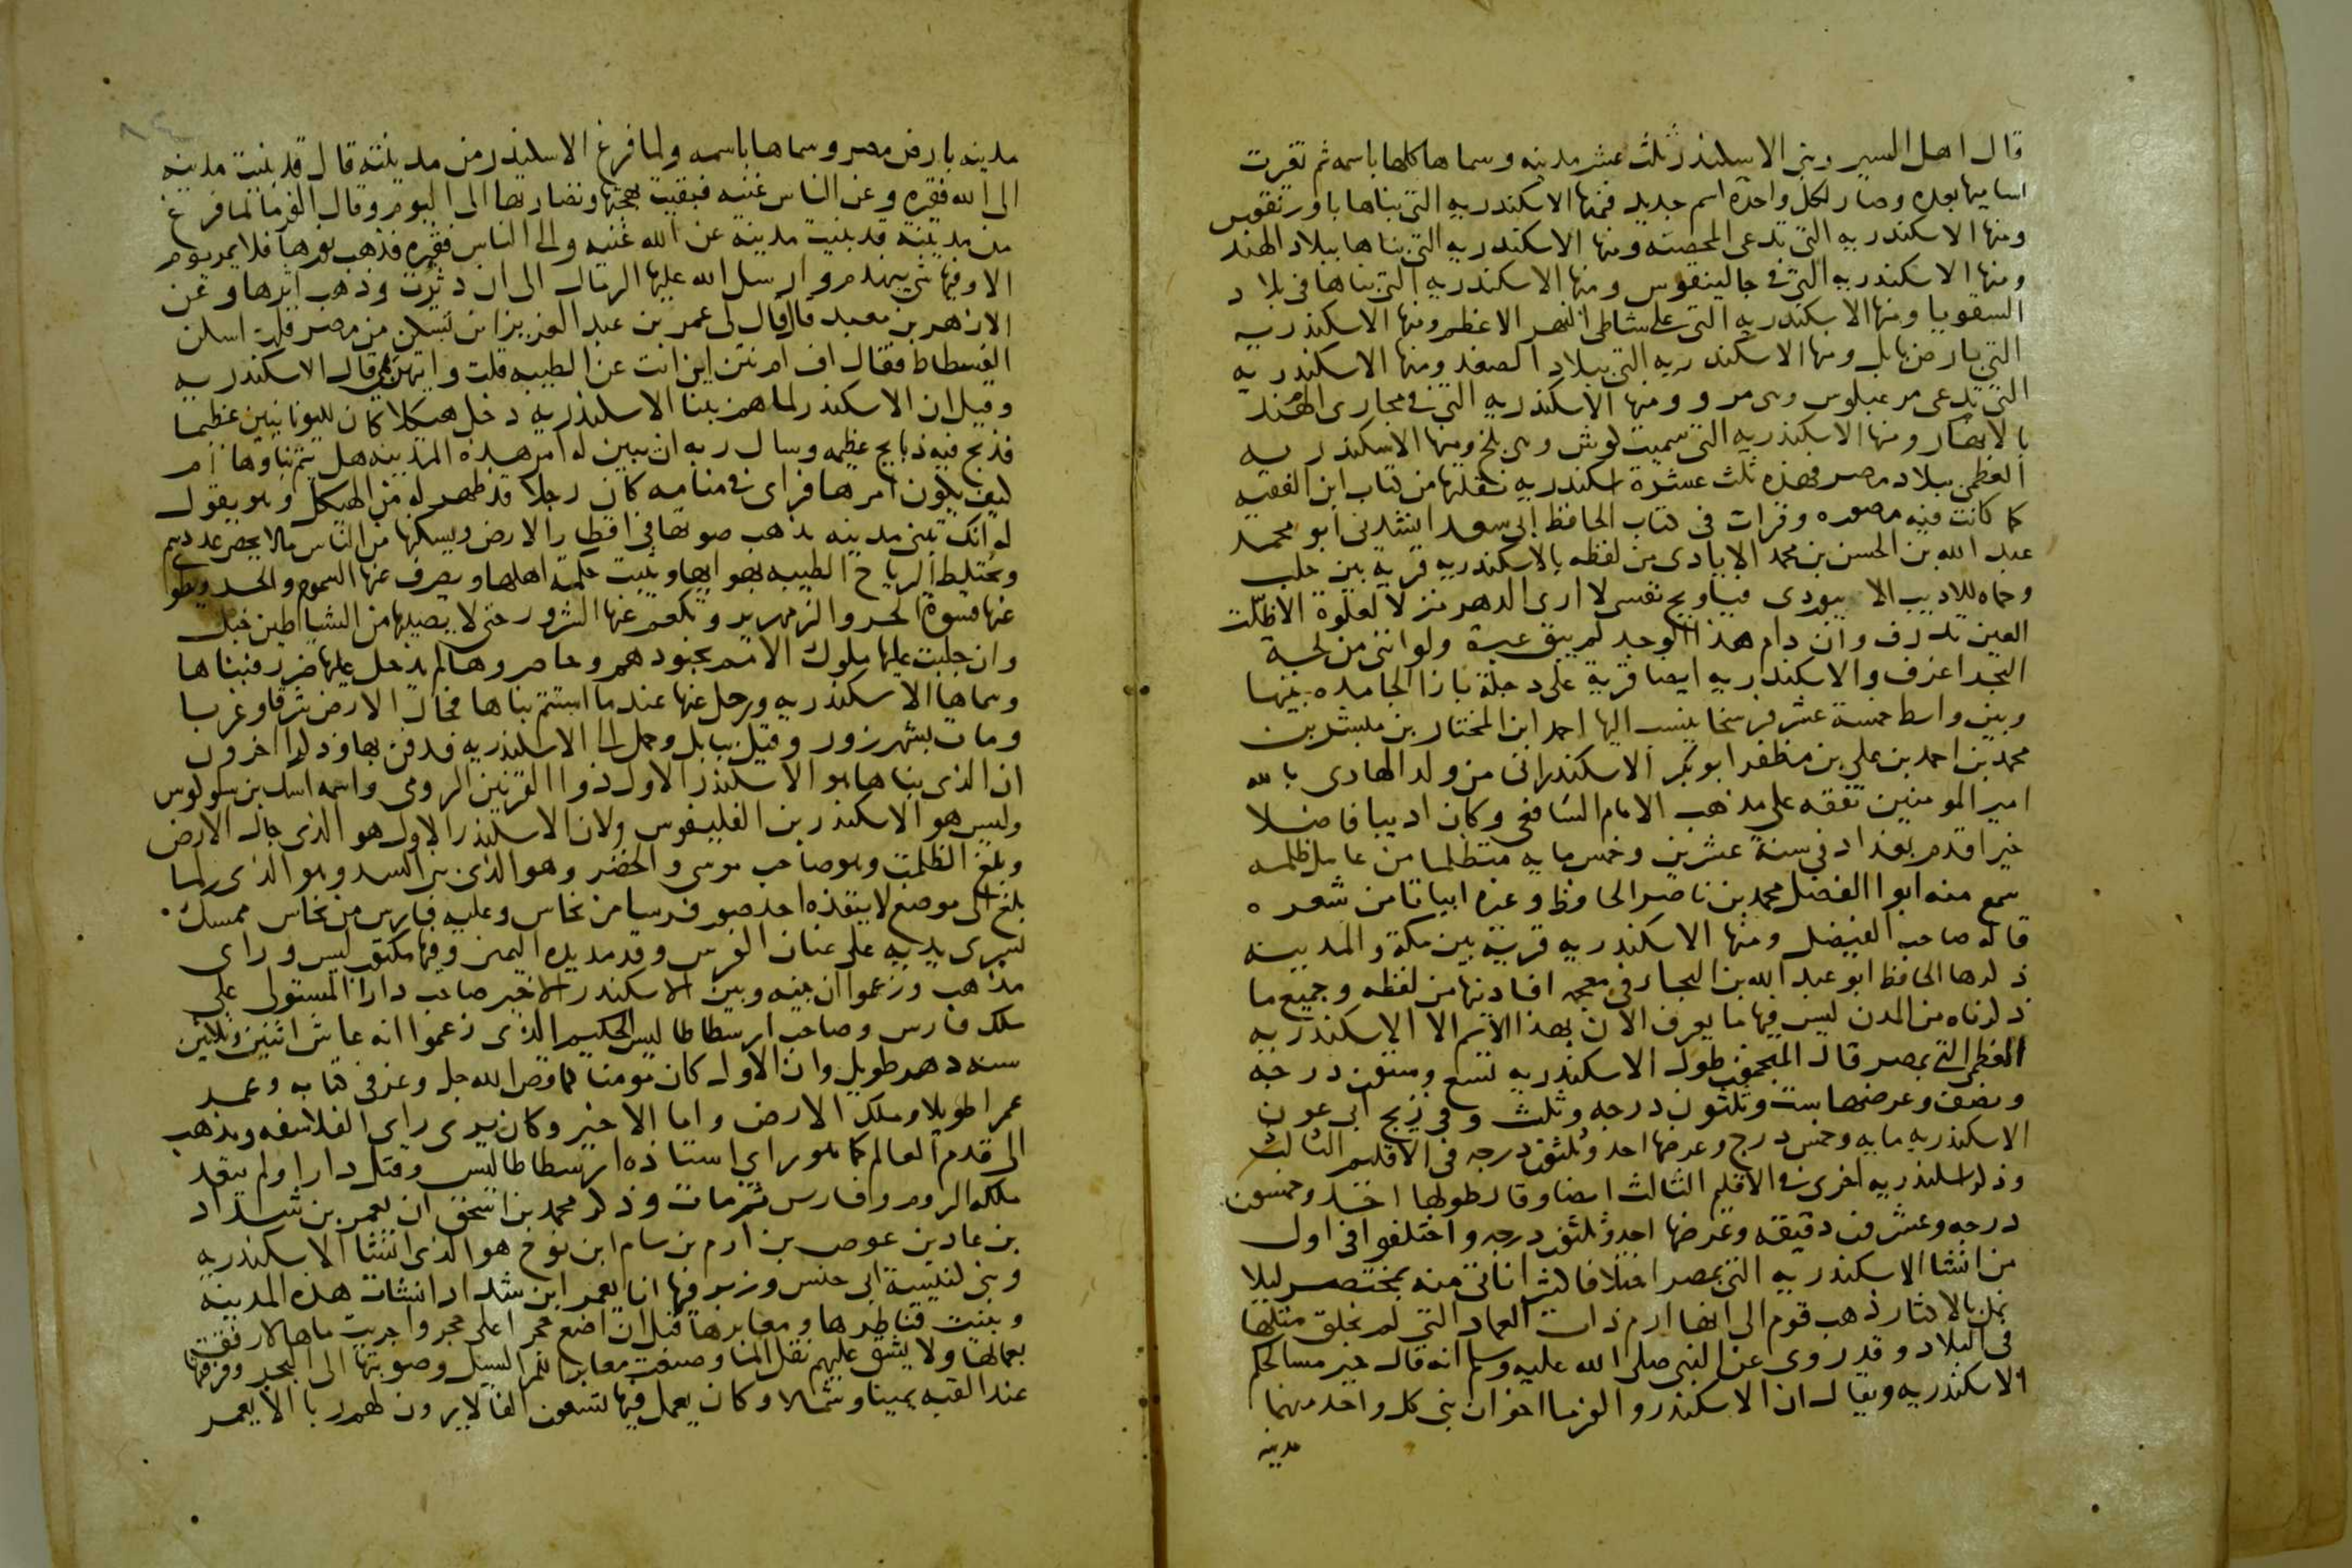 قال اهل السير وبنى الاسكندر ثلث عشر مدينه وسماها كلها باسمه ثم تغيرت
اساميها بعده وصار لكل واحدة اسم جديد فمنها الاسكندريه التي بناها باورنقوس
ومنها الاسكندريه التي تدعى المحصنه ومنها الاسكندريه التي بناها ببلاد الهند
ومنها الاسكندريه التي في جالينقوس ومنها الاسكندريه التي بناها في بلاد
السقوبا ومنها الاسكندريه التي على شاطئ النهر الاعظم ومنها الاسكندريه
التي بارض بابل ومنها الاسكندريه التي ببلاد الصغد ومنها الاسكندريه
التي تدعى مرغبلوس وهى مرو ومنها الاسكندريه التي في مجارى الهند
بالانهار ومنها الاسكندريه التي سميت لوش وهى بلخ ومنها الاسكندريه
العظمى ببلاد مصر فهذه ثلث عشرة اسكندريه نقلتها من كتاب ابن الفقيه
كما كانت فيه مصوره وقرات في كتاب الحافظ ابى سعد انشدنى ابو محمد
عبد الله بن الحسن بن محمد الايادى من لفظه بالاسكندريه قرية بين حلب
وحماه للاديب الابيوردى فياويح نفسى لا ارى الدهر منزلا لعلوة الا ظلت
العين تذرف وان دام هذا الوجد لم يبق عبرة ولو اننى من لجة
البحر اغرف والاسكندريه ايضا قرية على دجلة بازا الجامده بينها
وبين واسط خمسة عشر فرسخا ينسب اليها احمد ابن المختار بن مبشر بن
محمد بن احمد بن على بن مظفر ابو بكر الاسكندرانى من ولد الهادى بالله
امير المومنين تفقه على مذهب الامام الشافعى وكان اديبا فاضلا
خيرا قدم بغداد في سنة عشرين وخمس مايه متظلما من عامل ظلمه
سمع منه ابو الفضل محمد بن ناصر الحافظ وغيره ابياتا من شعره
قاله صاحب الفيصل ومنها الاسكندريه قرية بين مكة والمدينه
ذكرها الحافظ ابو عبد الله بن النجار في معجمه افادنيها من لفظه وجميع ما
ذكرناه من المدن ليس فيها ما يعرف الان بهذا الاسم الا الاسكندريه
العظمى التي بمصر قال المنجمون طول الاسكندريه تسع وستون درجه
ونصف وعرضها ست وثلثون درجه وثلث وفى زيج ابى عون
الاسكندريه مايه وخمس درج وعرضها احد وثلثون درجه في الاقليم الثالث
وذكر اسكندريه اخرى في الاقليم الثالث ايضا وقال طولها احد وخمسون
درجه وعشرون دقيقه وعرضها احد وثلثون درجه واختلفوا في اول
من انشا الاسكندريه التي بمصر اختلافا كثيرا ناتى منه بمختصر ليلا
نمل بالاكثار ذهب قوم الى انها ارم ذات العماد التي لم يخلق مثلها
في البلاد وقد روى عن النبى صلى الله عليه وسلم انه قال خير مسالحكم
الاسكندريه ويقال ان الاسكندر والفرما اخوان بنى كل واحد منهما
مدينه
مدينه بارض مصر وسماها باسمه ولما فرغ الاسكندر من مدينته قال قد بنيت مدينه
الى الله فقيره وعن الناس غنيه فبقيت بهجتها ونضارتها الى اليوم وقال الفرما لما فرغ
من مدينته قد بنيت مدينه عن الله غنيه والى الناس فقيره فذهب نورها فلا يمر يوم
الا وفيها شى ينهدم وارسل الله عليها الرمال الى ان دثرت وذهب اثرها وعن
الازهر بن معبد قال قال لى عمر بن عبد العزيز اين تسكن من مصر قلت اسكن
الفسطاط فقال اف ام نتن اين انت عن الطيبه قلت وايتهن هى قال الاسكندريه
وقيل ان الاسكندر لما هم ببنا الاسكندريه دخل هيكلا كان لليونانيين عظيما
فذبح فيه ذبايح عظيمه وسال ربه ان يبين له امر هذه المدينه هل يتم بناوها ام
كيف يكون امرها فراى في منامه كان رجلا قد ظهر له من الهيكل وهو يقول
له انك تبنى مدينه يذهب صوتها في اقطار الارض ويسكنها من الناس مالا يحصى عددهم
وتختلط الرياح الطيبه بهوايها ويثبت حكمة اهلها ويصرف عنها السموم والحر ويطوى
عنها قسوة الحر والزمهرير وتكعم عنها الشرور حتى لا يصيبها من الشياطين خبل
وان جلبت عليها ملوك الامم بجنودهم وحاصروها لم يدخل عليها ضرر فبناها
وسماها الاسكندريه ورحل عنها عندما استتم بناها فجال الارض شرقا وغربا
ومات بشهرزور وقيل ببابل وحمل الى الاسكندريه فدفن بها وذكر اخرون
ان الذي بناها هو الاسكندر الاول ذوا القرنين الرومى واسمه اسك بن سلوكوس
وليس هو الاسكندر بن الفليفوس ولان الاسكندر الاول هو الذي جال الارض
وبلغ الظلمت وهو صاحب موسى والخضر وهو الذي بنى السد وهو الذي لما
بلغ الى موضع لا ينفذه احد صور فرسا من نحاس وعليه فارس من نحاس ممسك
يسرى يديه على عنان الفرس وقد مد يده اليمنى وفيها مكتوب ليس وراى
مذهب وزعموا ان بينه وبين الاسكندر الاخير صاحب دارا المستولى على
ملك فارس وصاحب ارسطاطاليس الحكيم الذي زعموا انه عاش اثنين وثلاثين
سنه دهر طويل وان الاول كان مومنا كما قص الله جل وعز في كتابه وعمر
عمرا طويلا وملك الارض واما الاخير وكان يرى راى الفلاسفه ويذهب
الى قدم العالم كما هو راى استاذه ارسطاطاليس وقتل دارا ولم يتعد
ملكه الروم وافارس ثم مات وذكر محمد بن اسحق ان يعمر بن شداد
بن عاد بن عوص بن ارم بن سام ابن نوح هو الذي انشا الاسكندريه
وهى كنيسة ابى حنس وزبر فيها انا يعمر ابن شداد انشات هذه المدينه
وبنيت قناطرها ومعابرها قبل ان اضع حجرا على حجر واجريت ماها لارفق
بعمالها ولا يشق عليهم نقل الما وصنعت معابرا لممر السبيل وصوبتها الى البحر وفرقتها
عند القبه يمينا وشمالا وكان يعمل فيها تسعون الفا لا يرون لهم ربا الا يعمر